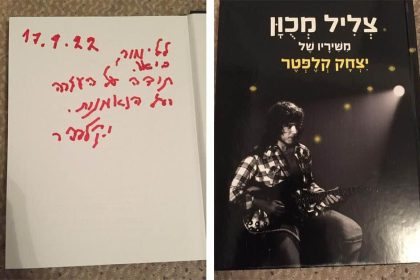 17.9.22
ללימור,
תודה על העזרה
ועל הנאמנות.
י. קלפטר
צְלִיל מְכֻוָּן
מִשִּׁירָיו שֶׁל
יִצְחָק קְלֶפְּטֶר